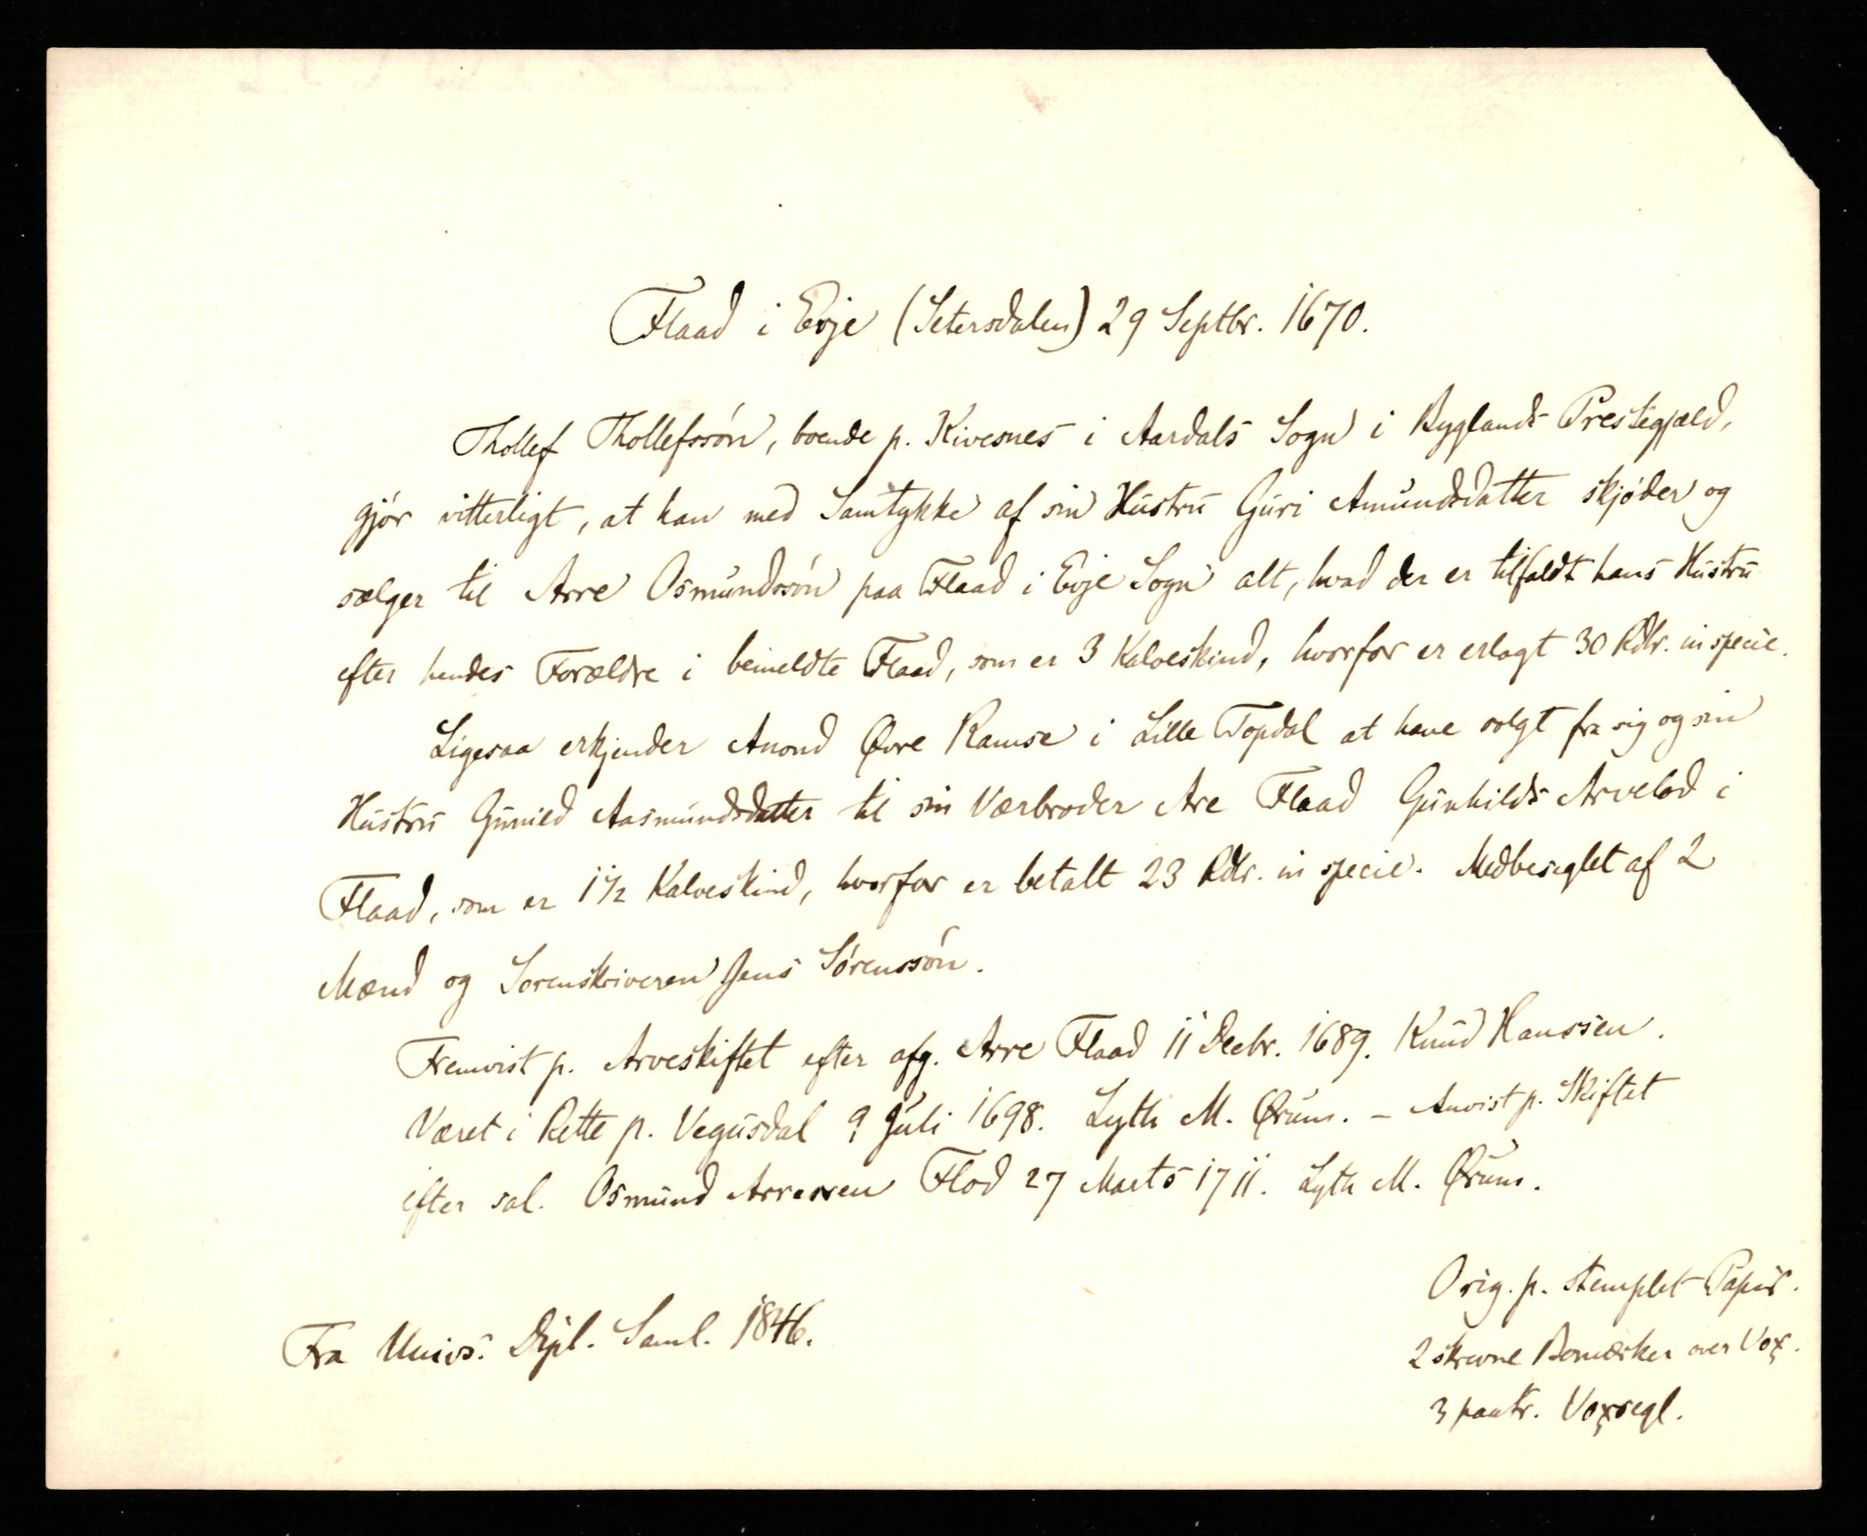 Flaad i Evje (Setersdalen) 29 Septbr. 1670.
Thollef Thollefssøn, boende p. Kivesnes i Aardals Sogn i Byglands Prestegjæld,
gjør vitterligt, at han med Samtykke af sin Hustru Guri Amundsdatter skjøder og
sælger til Arre Osmundssøn paa Flaad i Evje Sogn alt, hvad der er tilfaldt hans Hustru
efter hendes Forældre i bemeldte Flaad, som er 3 Kalveskind, hvorfor er erlagt 30 Rdlr. in specie.
Ligesaa erkjender Anond Øvre Ramse i Lille Topdal at have solgt fra sig og sin
Hustru Gunild Aasmundsdatter til sin Værbroder Are Flaad Gunhilds Arvelod i
Flaad, som er 1 1/2 Kalveskind, hvorfor er betalt 23 Rdlr. in specie. Medbeseglet af 2
Mænd og Sorenskriveren Jens Sørenssøn.
Fremvist p. Arveskiftet efter afg. Arre Flaad 11 Decbr. 1689. Knud Hanssen.
Været i Rette p. Vegusdal 9 Juli 1698. Lyth M. Ørum. – Anvist p. Skiftet
efter sal. Osmund Arressen Flod 27 Marts 1711. Lyth M. Ørum.
Orig. p. stemplet Papir.
Fra Univs. Dipl. Saml. 1846.
2 skrevne Bomærker over Vox.
3 paatr. Voxsegl.